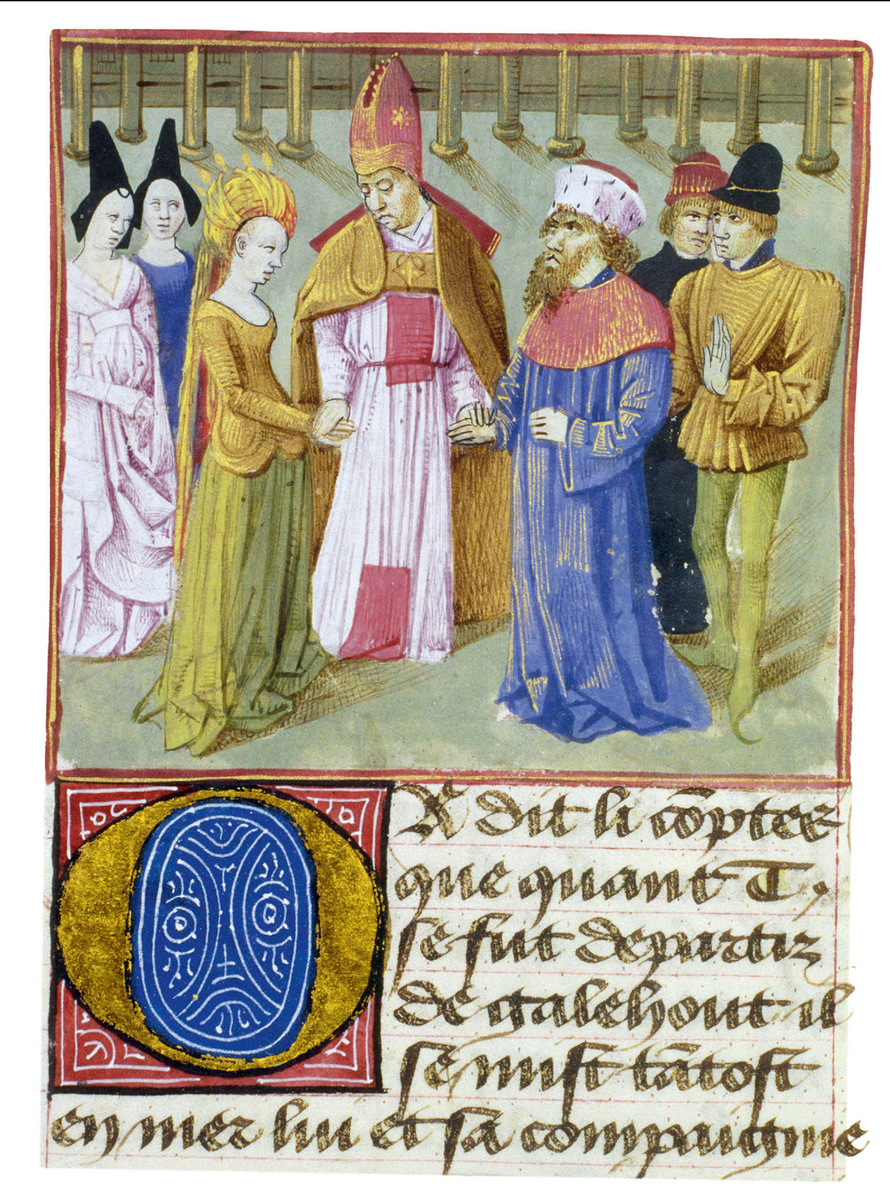 OR dit li cõptes
que quant T.
se fut departiz
de galehout il
se mist tãtost
en mer lui et sa compaignie